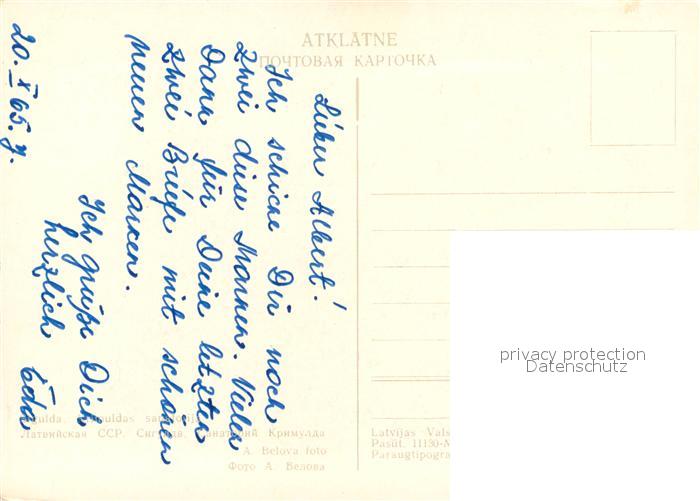 ATKLĀTNE
ПОЧТОВАЯ КАРТОЧКА
Lieber Albert!
Ich schicke Dir noch
zwei diese Marken. Vielen
Dank für Deine letzten
zwei Briefe mit schönen
neuen Marken.
Ich grüße Dich
herzlich Eda
20. X 65.
Sigulda.
Латвийская ССР. Сигулда. Санаторий Кримулда
A. Belova foto
Фото А. Белова
Latvijas Vals
Pasūt. 11130-M
Paraugtipogra
privacy protection
Datenschutz